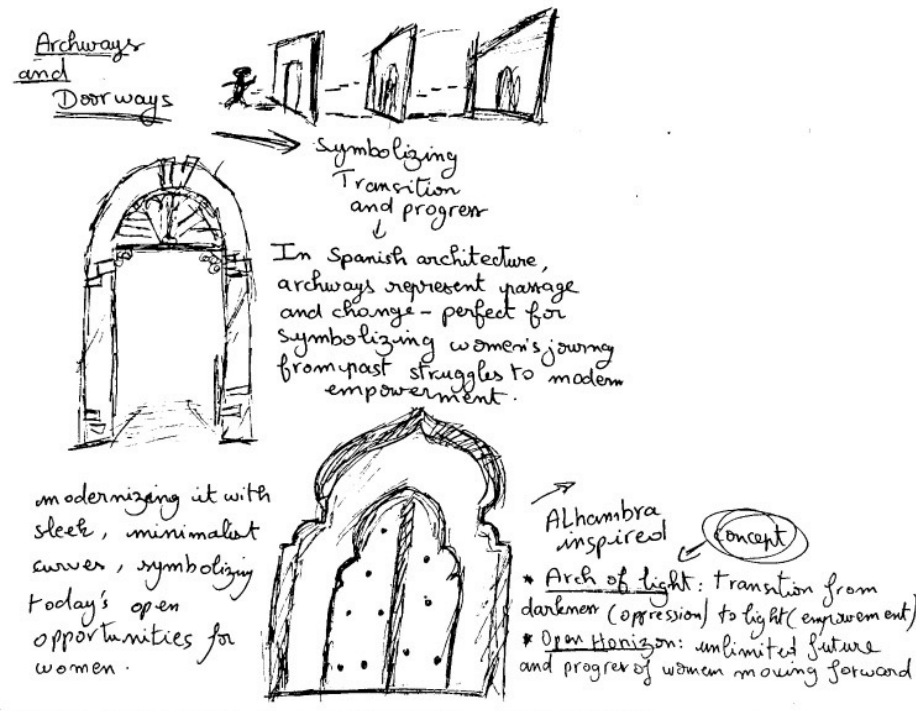 Archways
and
Doorways
Symbolizing
Transition
and progress
In Spanish architecture,
archways represent passage
and change - perfect for
symbolizing women's journey
from past struggles to modern
empowerment.
modernizing it with
sleek, minimalist
curves, symbolizing
today's open
opportunities for
women.
ALhambra
inspired
Concept
* Arch of light: Transition from
darkness (oppression) to light (empowerment)
* Open Horizon: unlimited future
and progress of women moving forward